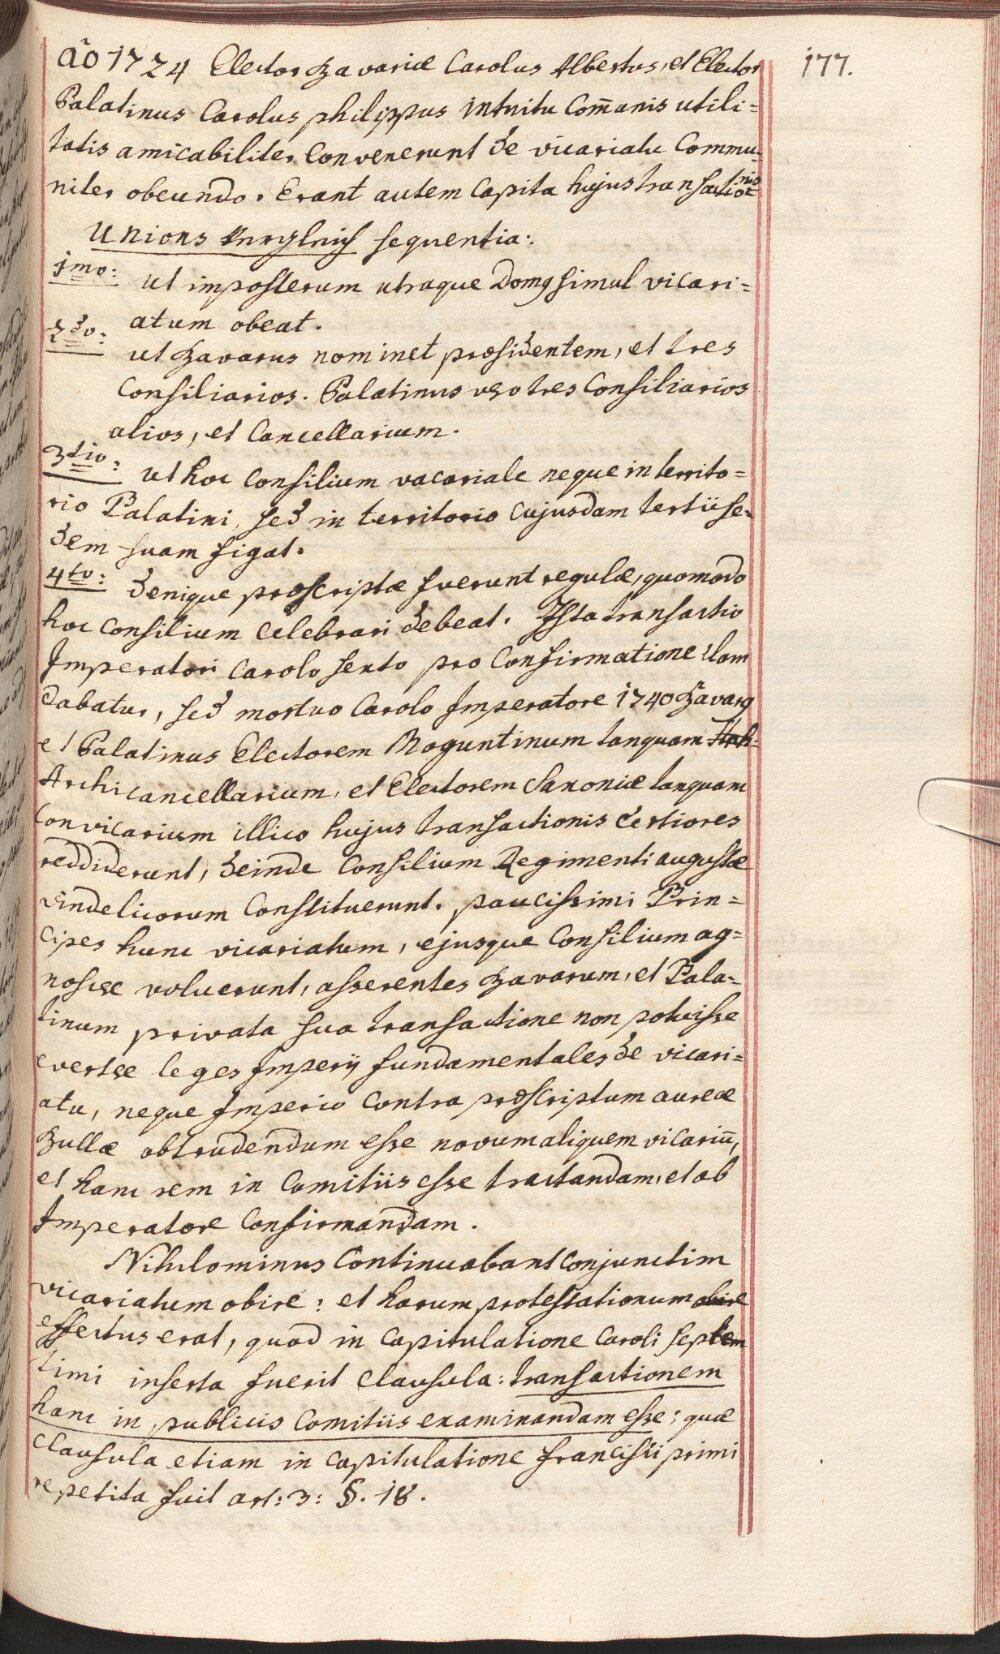 177.
ao 1724 Elector Bavariæ Carolus Albertus, et Elector
Palatinus Carolus philippus intuitu Com̄unis utili=
tatis amicabiliter Convenerunt de vicariatu Commu=
niter obeundo. Erant autem Capita hujus transactionis
Unions Vergleich sequentia:
1mo: ut imposterum utraque Dom9 simul vicari=
atum obeat.
2do: ut Bavarus nominet præsidentem, et tres
Consiliarios. Palatinus vero tres Consiliarios
alios, et Cancellarium.
3tio: ut hoc Consilium vacariale neque in territo=
rio Palatini, sed in territorio cujusdam tertii se=
dem suam figat.
4to: denique præscriptæ fuerunt regulæ, quomodo
hoc Consilium celebrari debeat. Ista transactio
Imperatori Carolo sexto pro Confirmatione clam
dabatur, sed mortuo Carolo Imperatore 1740 Bavar9
et Palatinus Electorem Moguntinum tanquam
Archicancellarium, et Electorem Saxoniæ tanquam
Convicarium illico hujus transactionis certiores
reddiderunt, deinde Consilium Regimenti augustæ
vindelicorum Constituerunt. paucissimi Prin=
cipes hunc vicariatum, ejusque Consilium ag=
noscere voluerunt, asserentes Bavarum, et Pala=
tinum privata sua transactione non potuisse
evertere leges Imperij fundamentales de vicari=
atu, neque Imperio Contra præscriptum aureæ
Bullæ obtrudendum esse novum aliquem vicariū,
et hanc rem in Comitiis esse tractandam, et ab
Imperatore Confirmandam.
Nihilominus Continuabant Conjunctim
vicariatum obire: et harum protestationum obire
effectus erat, quod in Capitulatione Caroli Septem
timi inserta fuerit Clausula: transactionem
hanc in publicis Comitiis examinandam esse; quæ
Clausula etiam in Capitulatione francisci primi
repetita fuit art: 3: §. 18.